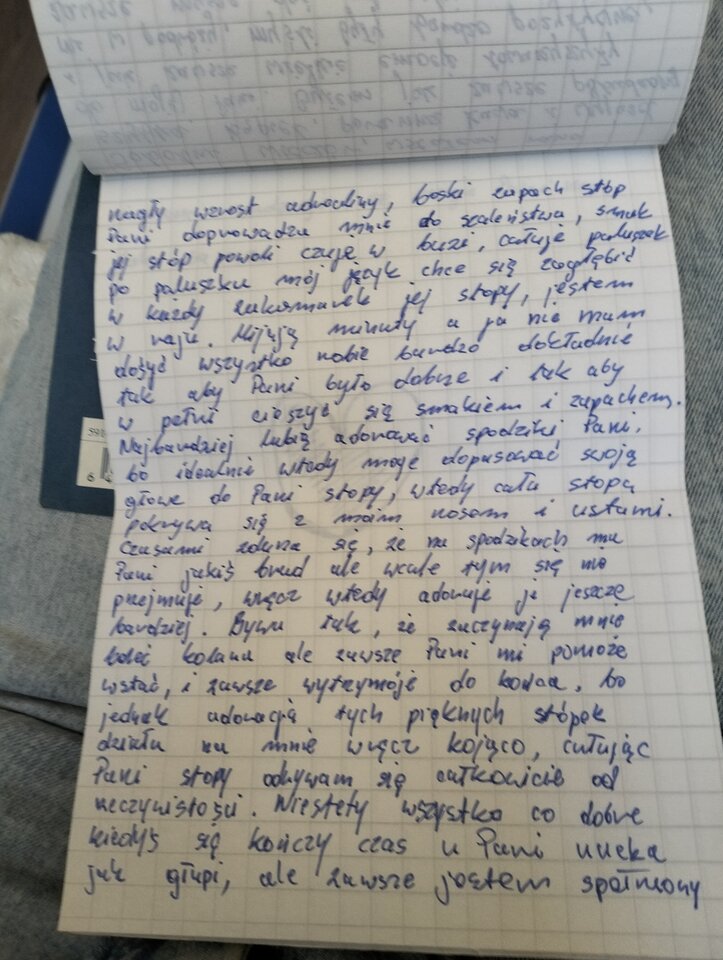 nagły wzrost adrenaliny, boski zapach stóp
Pani doprowadza mnie do szaleństwa, smak
jej stóp powoli czuję w buzi, całuje paluszek
po paluszku mój język chce się zagłębić
w każdy zakamarek jej stopy, jestem
w raju. Mijają minuty a ja nie mam
dosyć wszystko robie bardzo dokładnie
tak aby Pani było dobrze i tak aby
w pełni cieszyć się smakiem i zapachem.
Najbardziej lubię adorować spodziki Pani,
bo idealnie wtedy mogę dopasować swoją
głowe do Pani stopy, wtedy cała stopa
pokrywa się z moim nosem i ustami.
Czasami zdarza się, że na spodzikach ma
Pani jakiś brud ale wcale tym się nie
przejmuje, wręcz wtedy adoruje je jeszcze
bardziej. Bywa tak, że zaczynają mnie
boleć kolana ale zawsze Pani mi pomoże
wstać, i zawsze wytrzymóje do końca, bo
jednak adoracja tych pięknych stópek
działa na mnie wręcz kojąco, całując
Pani stopy odrywam się całkowicie od
rzeczywistości. Niestety wszystko co dobre
kiedyś się kończy czas u Pani ucieka
jak głupi, ale zawsze jestem spełniony